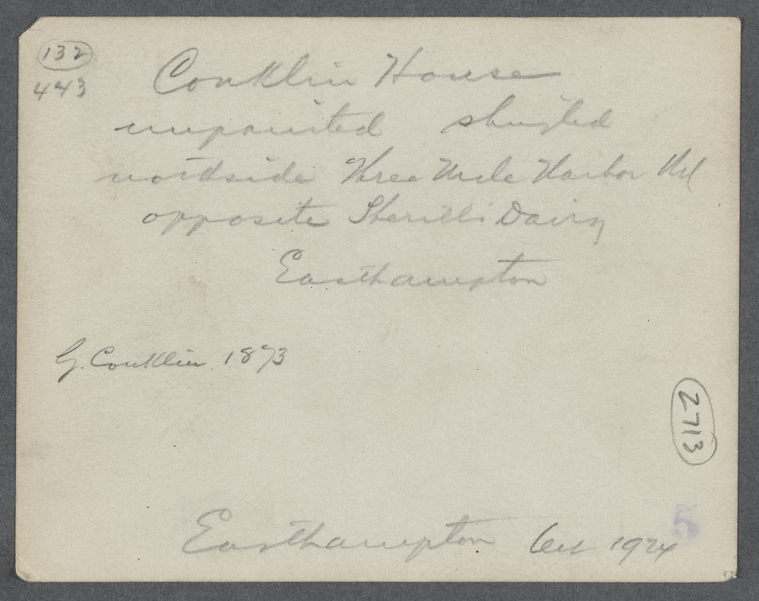 132
443
Conklin House
unpainted shingled
northside Three Mile Harbor Rd
opposite Sherill's Dairy
Easthampton
G. Conklin 1873
2713
5
Easthampton Oct 1924